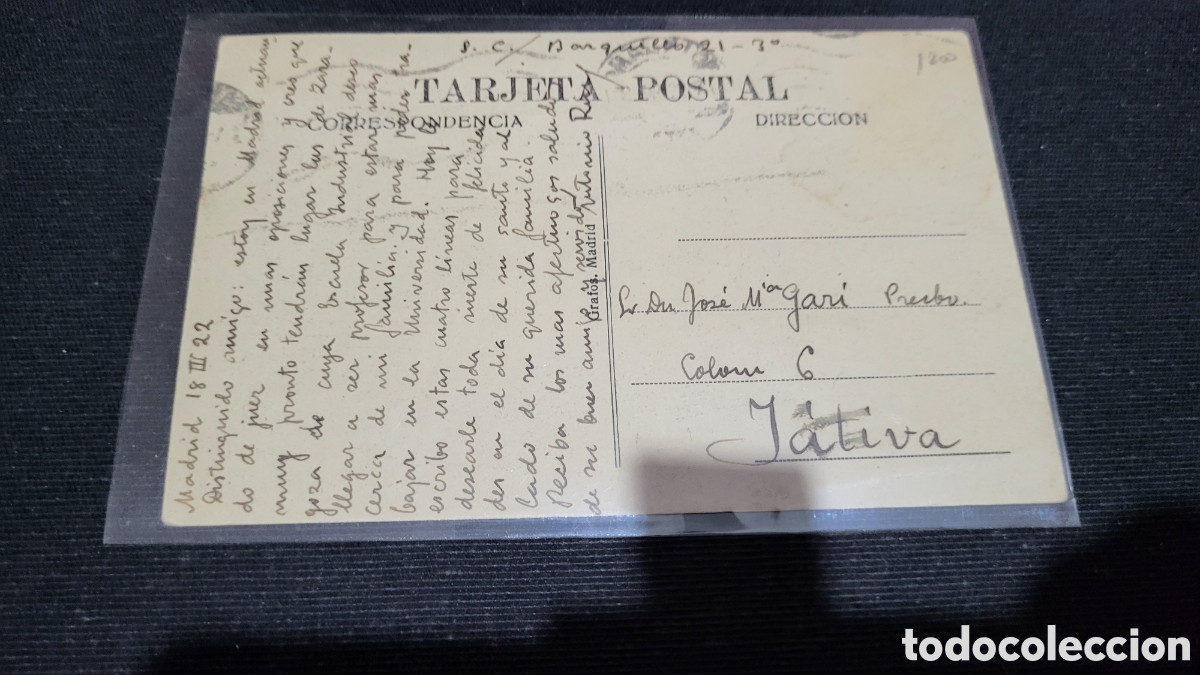 S. C. Barquillo 21-3º
1300
TARJETA POSTAL
CORRESPONDENCIA
DIRECCION
Madrid 18 III 22
Distinguido amigo: estoy en Madrid actuan
do de juez en unas oposiciones y creo que
muy pronto tendrán lugar las de Zara-
goza de cuya Escuela Industrial deseo
llegar a ser profesor para estar mas
cerca de mi familia y para poder tra-
bajar en la Universidad. Hoy le
escribo estas cuatro líneas para
desearle toda suerte de felicida
des en el día de su santo y al
lado de su querida familia.
Reciba los mas afectuosos saludos
de su buen amigo y servidor Antonio
Grafos. Madrid
Sr Dn José Mª Garí Presbo.
Colom 6
Játiva
todocoleccion